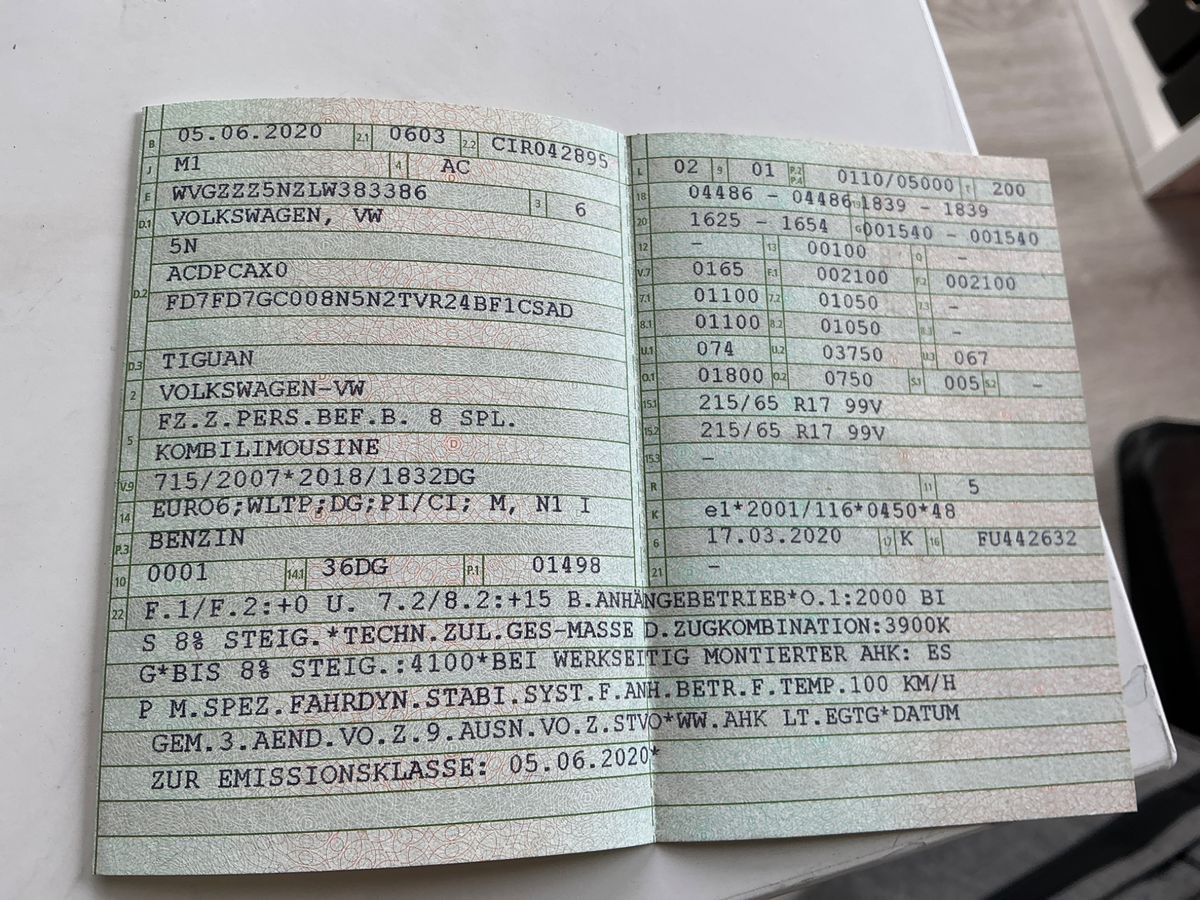 B 05.06.2020 2.1 0603 2.2 CIR042895
J M1 4 AC
E WVGZZZ5NZLW383386 3 6
D.1 VOLKSWAGEN, VW
5N
D.2 ACDPCAX0
FD7FD7GC008N5N2TVR24BF1CSAD
D.3 TIGUAN
2 VOLKSWAGEN-VW
5 FZ.Z.PERS.BEF.B. 8 SPL.
KOMBILIMOUSINE
V.9 715/2007*2018/1832DG
14 EURO6;WLTP;DG;PI/CI; M, N1 I
P.3 BENZIN
10 0001 14.1 36DG P.1 01498
L 02 9 01 P.2 P.4 0110/05000 T 200
18 04486 - 04486 19 1839 - 1839
20 1625 - 1654 G 001540 - 001540
12 - 13 00100 Q -
V.7 0165 F.1 002100 F.2 002100
7.1 01100 7.2 01050 7.3 -
8.1 01100 8.2 01050 8.3 -
U.1 074 U.2 03750 U.3 067
O.1 01800 O.2 0750 S.1 005 S.2 -
15.1 215/65 R17 99V
15.2 215/65 R17 99V
15.3 -
R 11 5
K e1*2001/116*0450*48
6 17.03.2020 17 K 16 FU442632
21 -
22 F.1/F.2:+0 U. 7.2/8.2:+15 B.ANHÄNGEBETRIEB*O.1:2000 BI
S 8% STEIG.*TECHN.ZUL.GES-MASSE D.ZUGKOMBINATION:3900K
G*BIS 8% STEIG.:4100*BEI WERKSEITIG MONTIERTER AHK: ES
P M.SPEZ.FAHRDYN.STABI.SYST.F.ANH.BETR.F.TEMP.100 KM/H
GEM.3.AEND.VO.Z.9.AUSN.VO.Z.STVO*WW.AHK LT.EGTG*DATUM
ZUR EMISSIONSKLASSE: 05.06.2020*